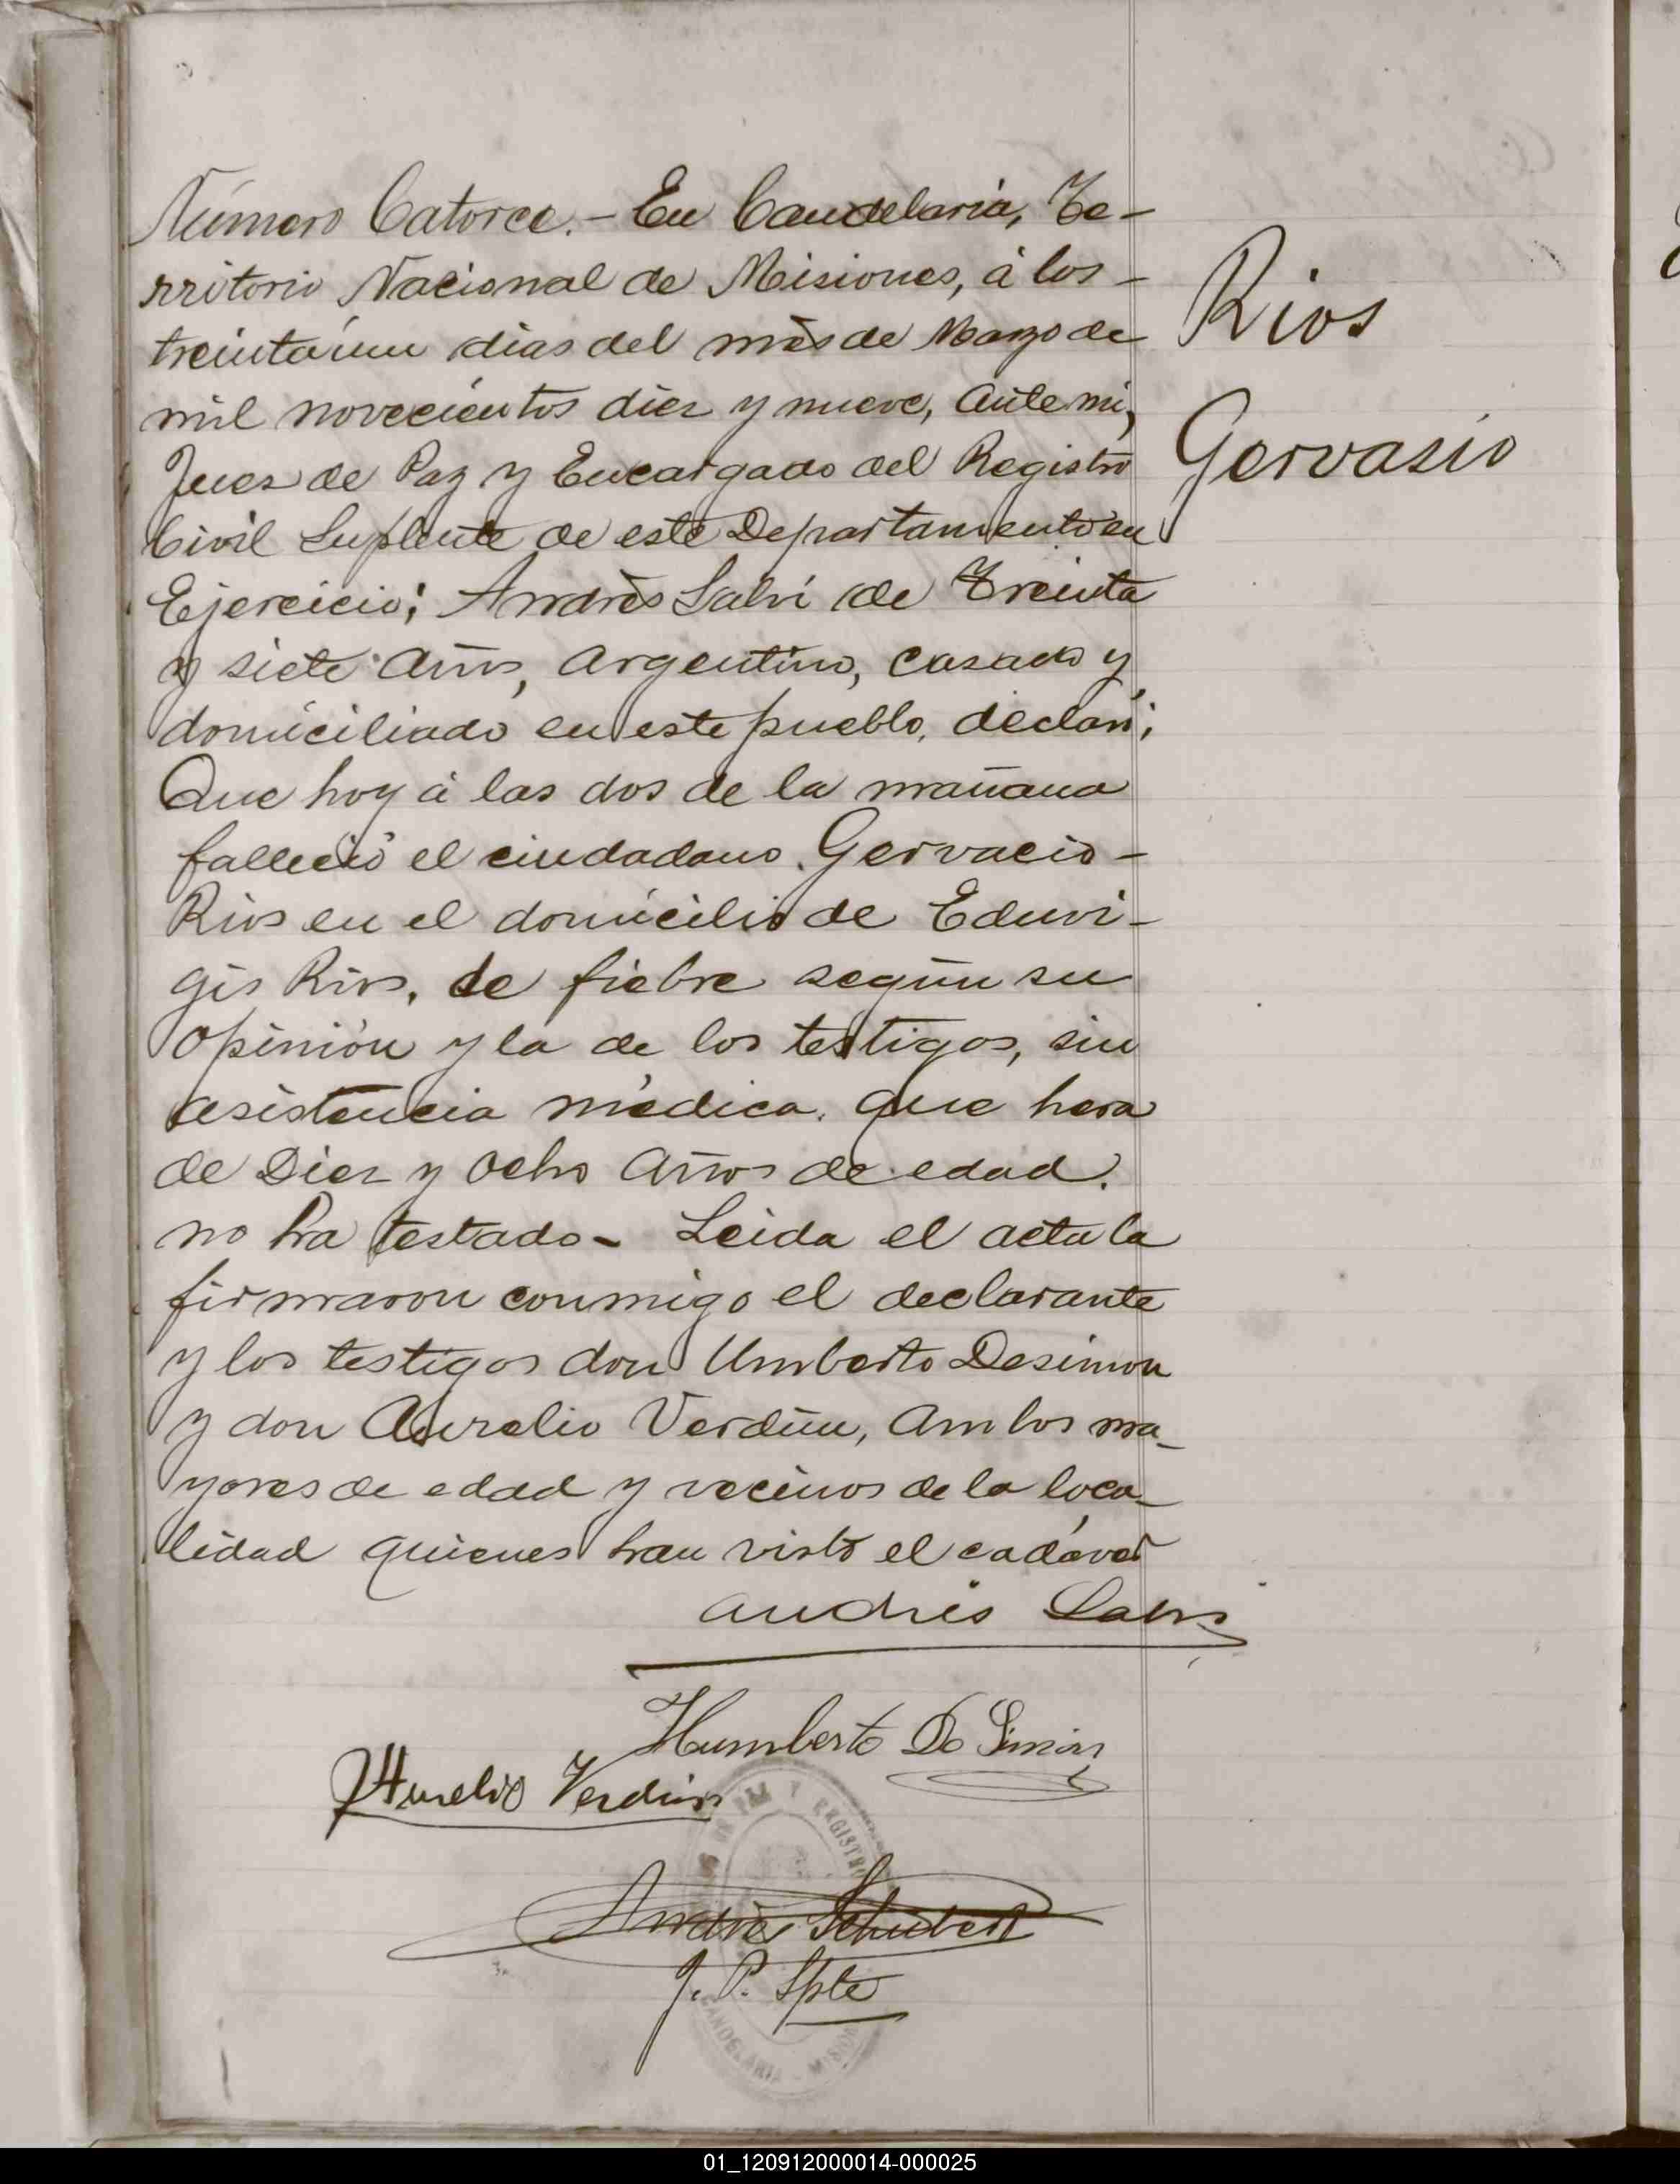 Número Catorce.- En Candelaria, Te-
rritorio Nacional de Misiones, á los -
treintaiun dias del mès de Marzo de
mil novecientos diez y nueve, Ante mi,
Juez de Paz y Encargado del Registro
Civil Suplente de este Departamento en
Ejercicio; Andrès Salvi de Treinta
y siete Años, Argentino, casado y
domiciliado en este pueblo, declaró;
Que hoy á las dos de la mañana
falleció el ciudadano Gervacio -
Rios en el domicilio de Eduvi-
gis Rios, de fiebre según su
opinión y la de los testigos, sin
asistencia médica. que hera
de Diez y Ocho Años de edad.
no ha testado - Leida el acta la
firmaron conmigo el declarante
y los testigos don Umberto Desimon
y don Aurelio Verdún, Ambos ma-
yores de edad y vecinos de la loca-
lidad quienes han visto el cadáver
Rios
Gervasio
Andrés Salvi
Humberto De Simón
Aurelio Verdún
Andrès Schubert
J. P. Splte
REGISTRO
CANDELARIA - MISION
01_120912000014-000025